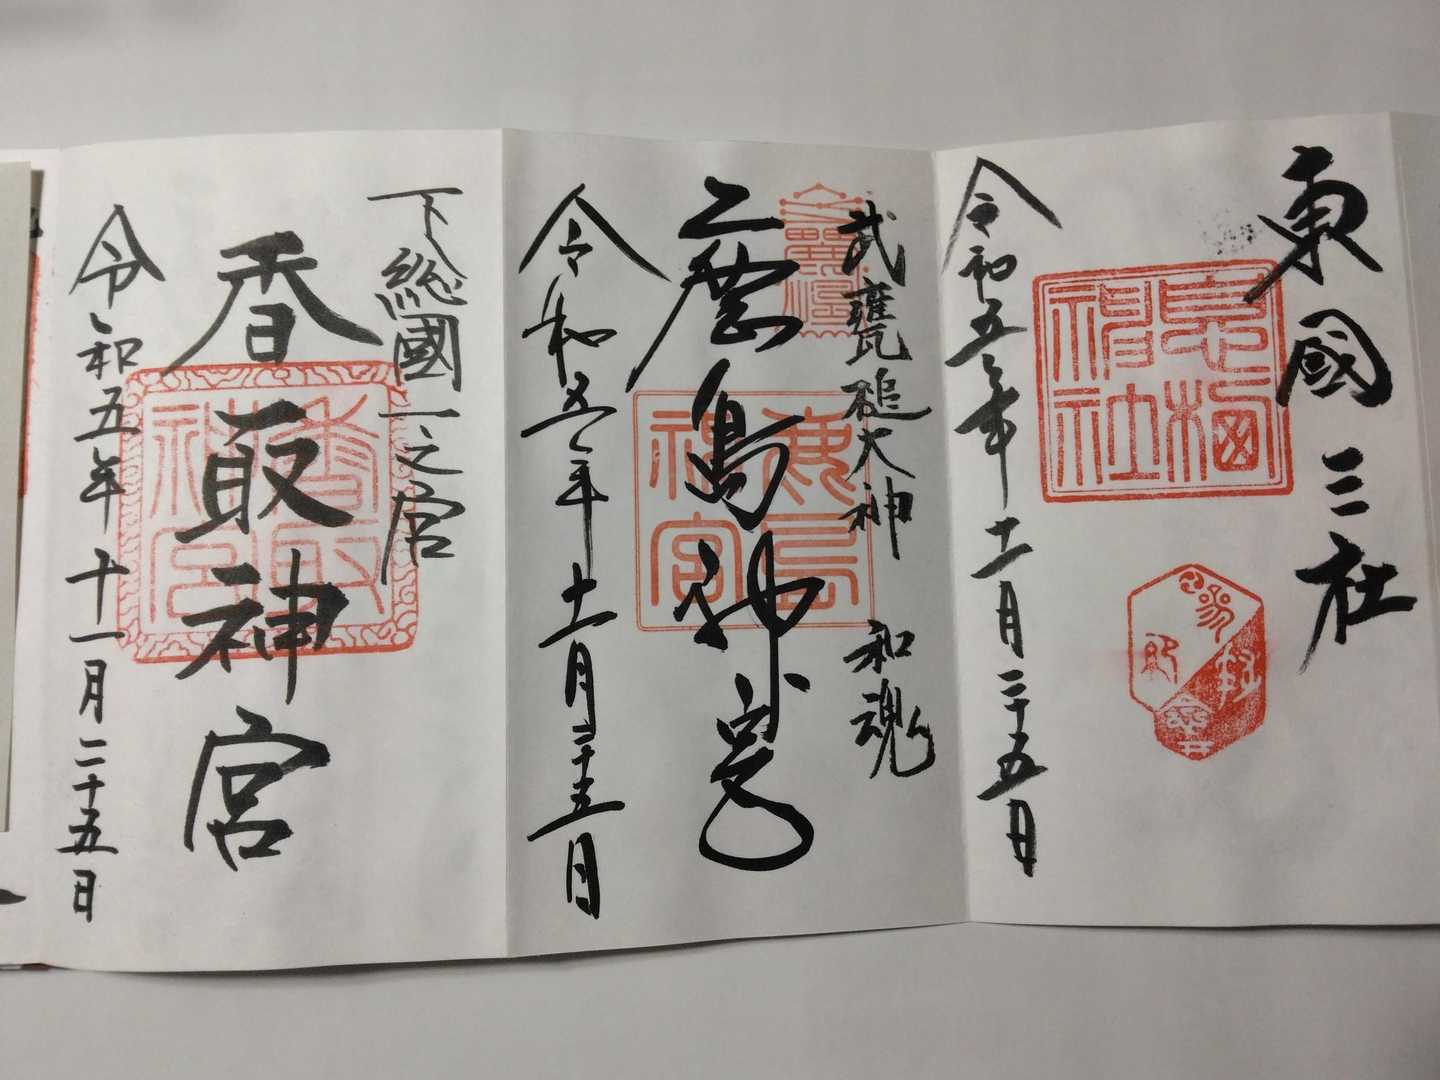 東國三社
息栖神社
令和五年十一月二十五日
武甕槌大神 和魂
鹿島神宮
鹿島神宮
令和五年十一月二十五日
下総國一之宮
香取神宮
香取神宮
令和五年十一月二十五日